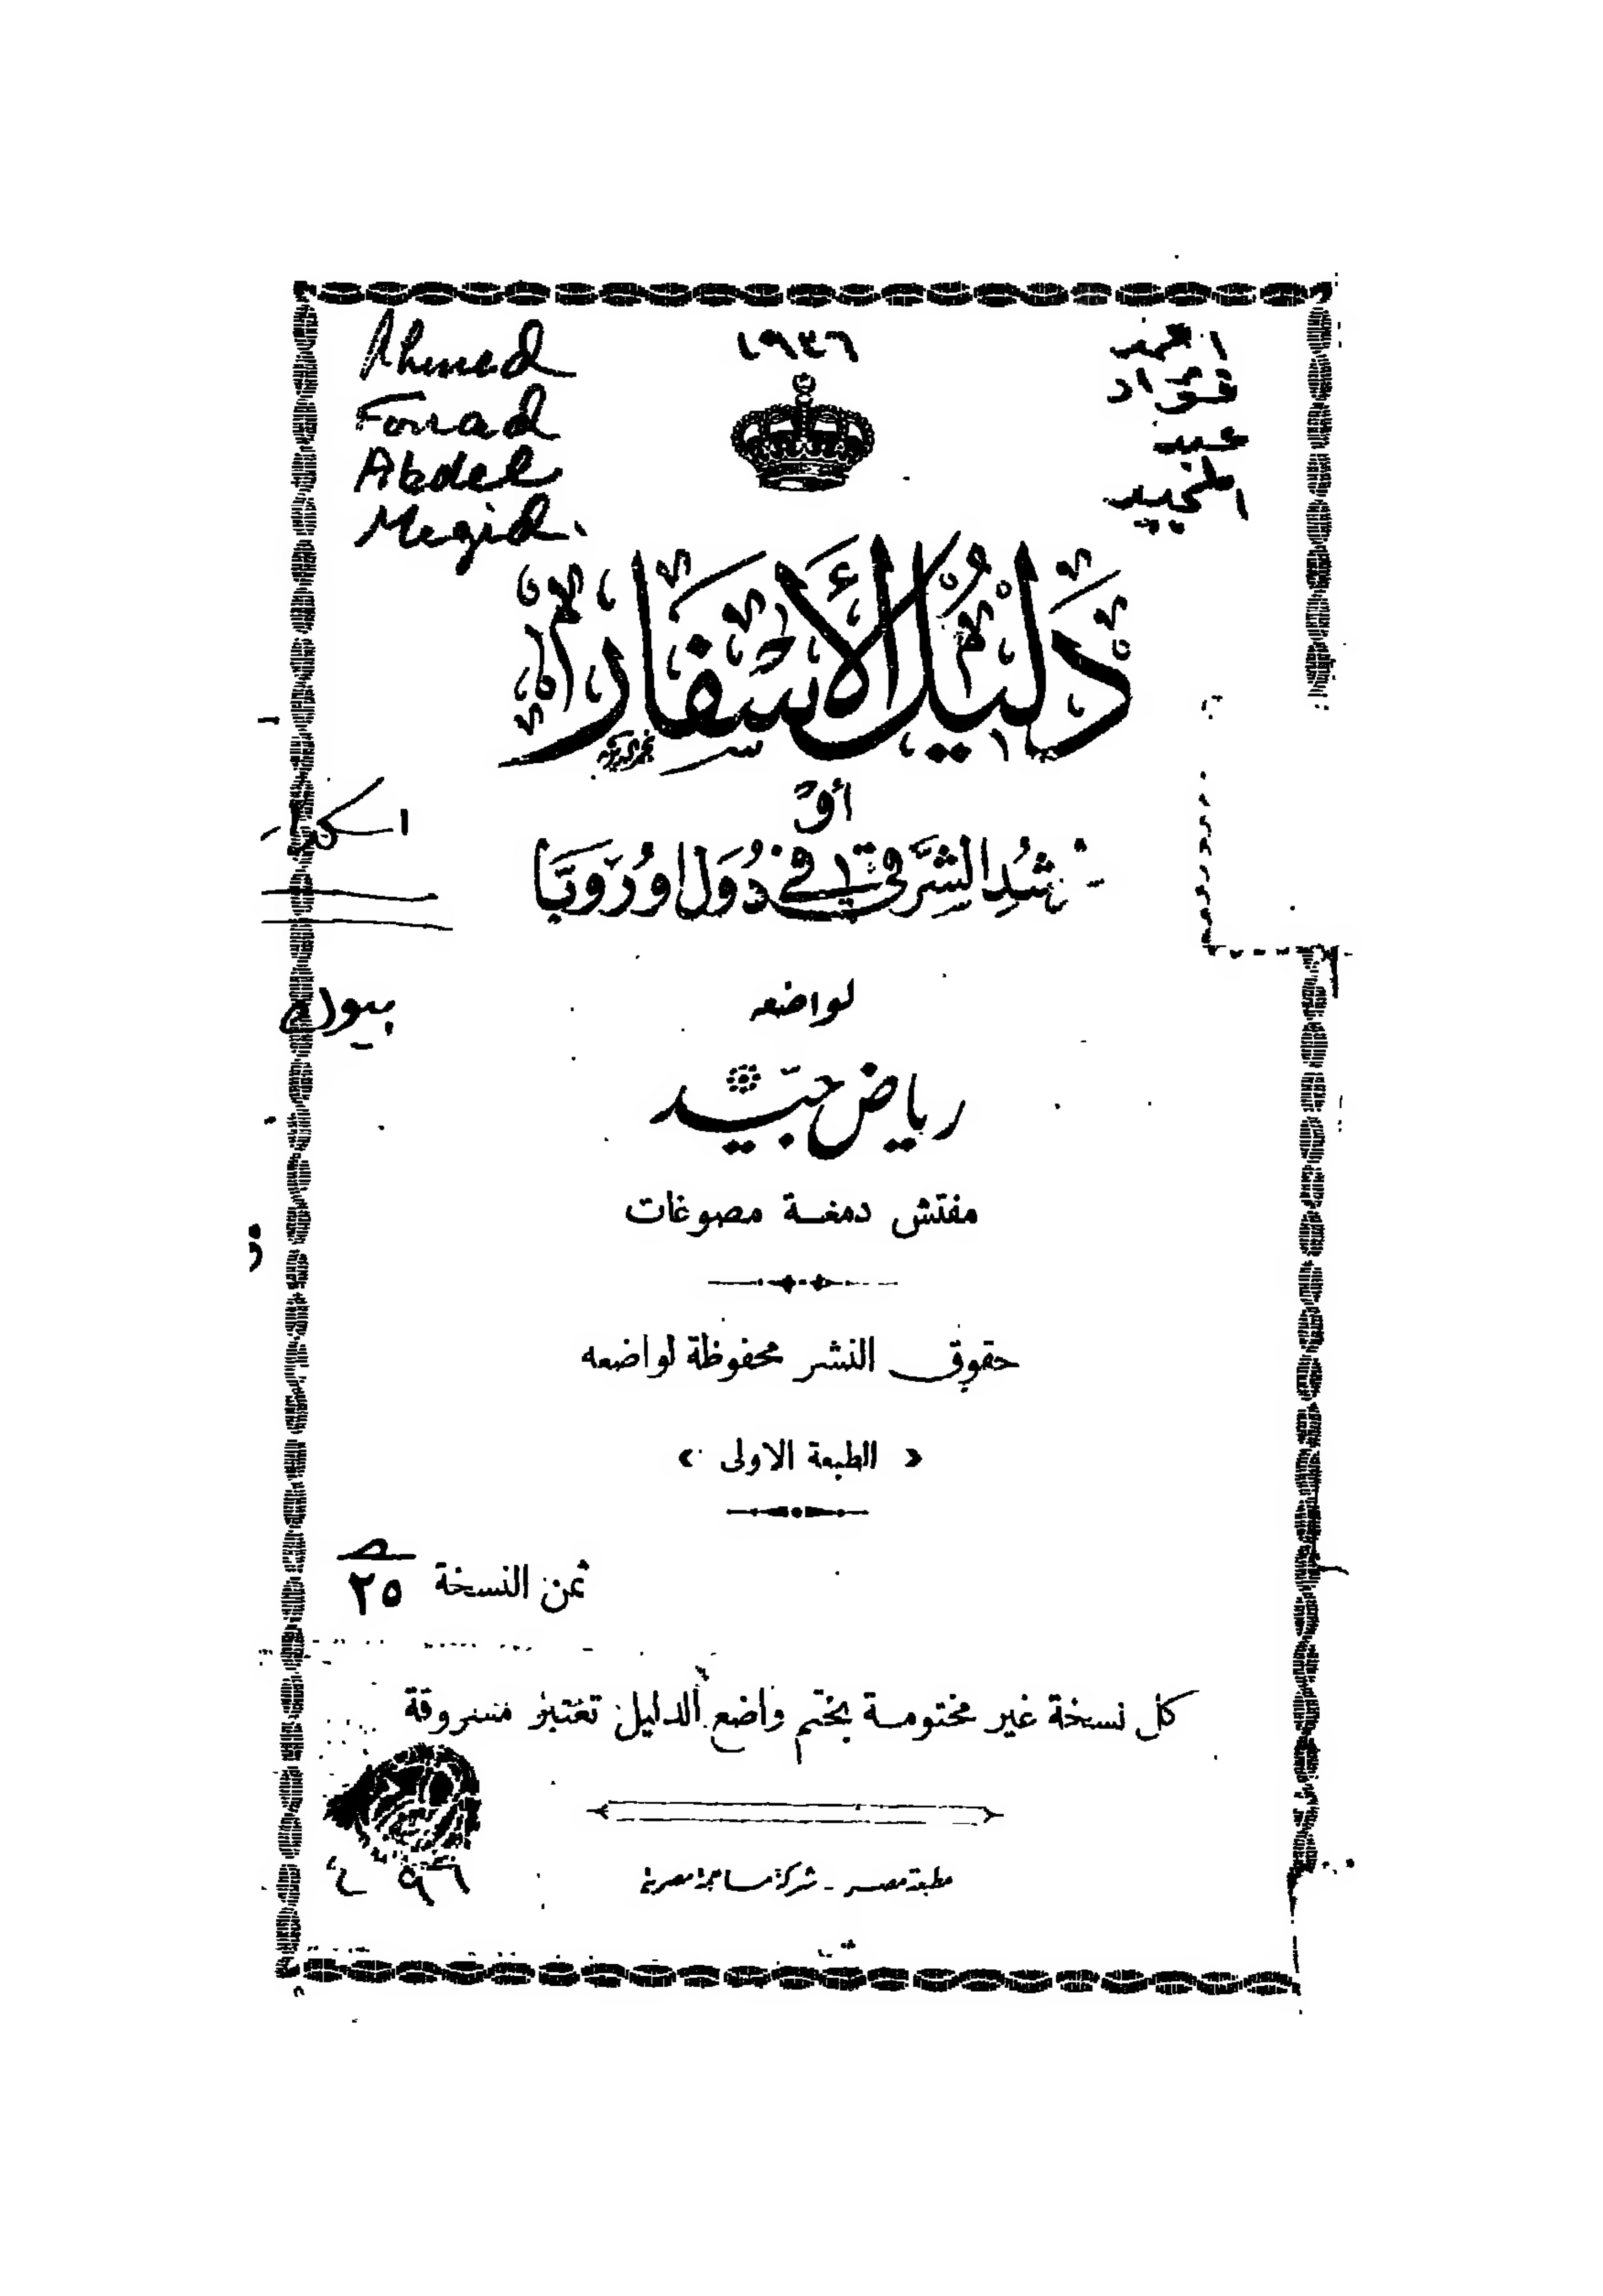 Ahmed
Fouad
Abdel
Megid.
١٩٣٦
احمد
فؤاد
عبد
المجيد
دَليلُ الأَسْفَار
أوْ
مرشد الشَّرقي في دُوَل اوُرُوبَّا
لواضعه
رياض جيّد
مفتش دمغة مصوغات
حقوق النشر محفوظة لواضعه
« الطبعة الاولى »
ثمن النسخة ٢٥
كل نسخة غير مختومة بختم واضع الدليل تعتبر مسروقة
مطبعة مصر - شركة مساهمة مصرية